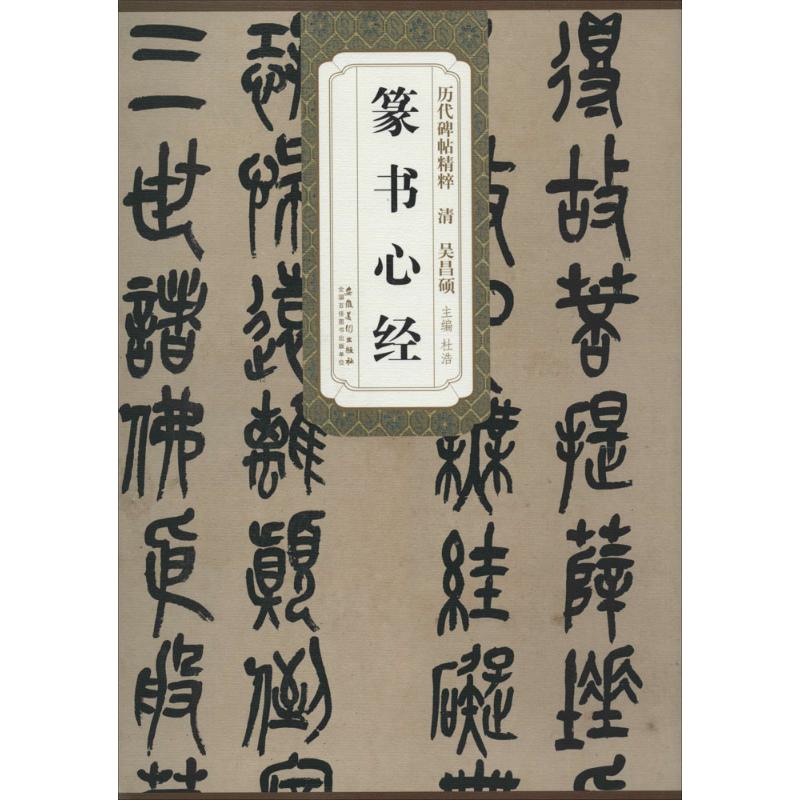 历代碑帖精粹 清 吴昌硕
主编 杜浩
篆书心经
安徽美术出版社
全国百佳图书出版单位
得故菩提薩埵
故心無絓礙
恐怖遠離顛倒
三世諸佛依般若